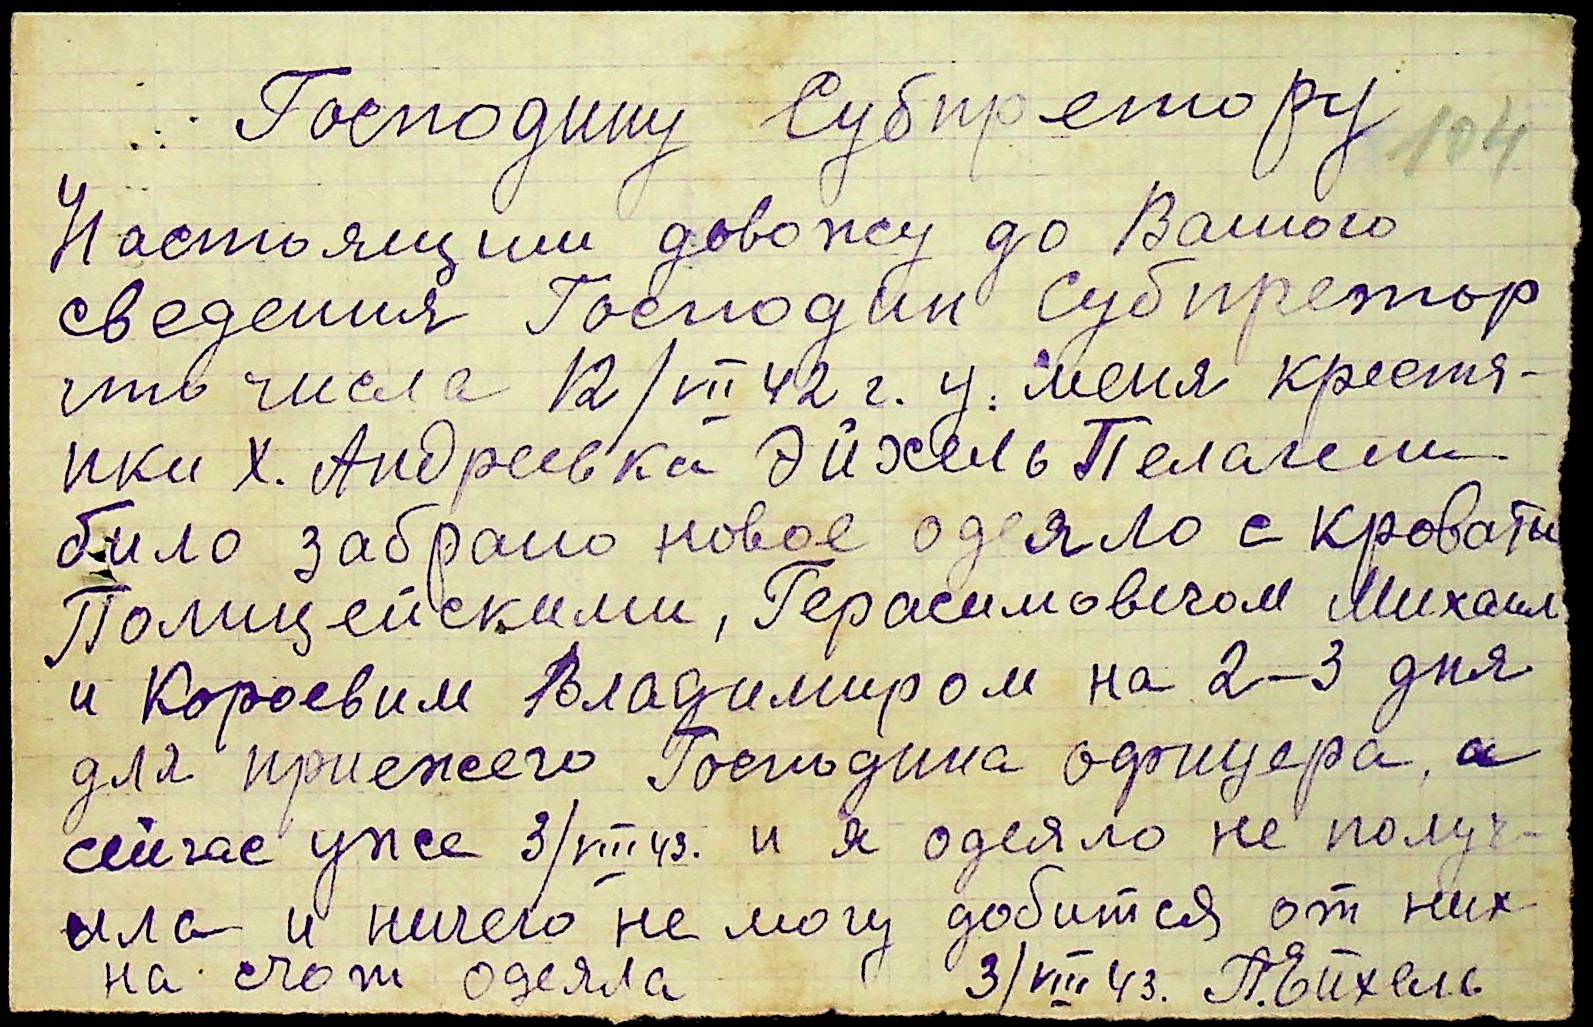 Господину Субпретору
104
Настоящим довожу до Вашого
сведения Господин Субпретор
что числа 12/VII 42 г. у меня крестя-
нки х. Андреевка Эйхель Пелагеи
било забрано новое одеяло с кровати
Полицейскими, Герасимовичом Михаил
и Короевим Владимиром на 2-3 дня
для приежего Господина офицера, а
сейчас уже 3/VIII 43. и я одеяло не получ-
ила и ничего не могу добится от них
на счот одеяла 3/VIII 43. П. Эйхель